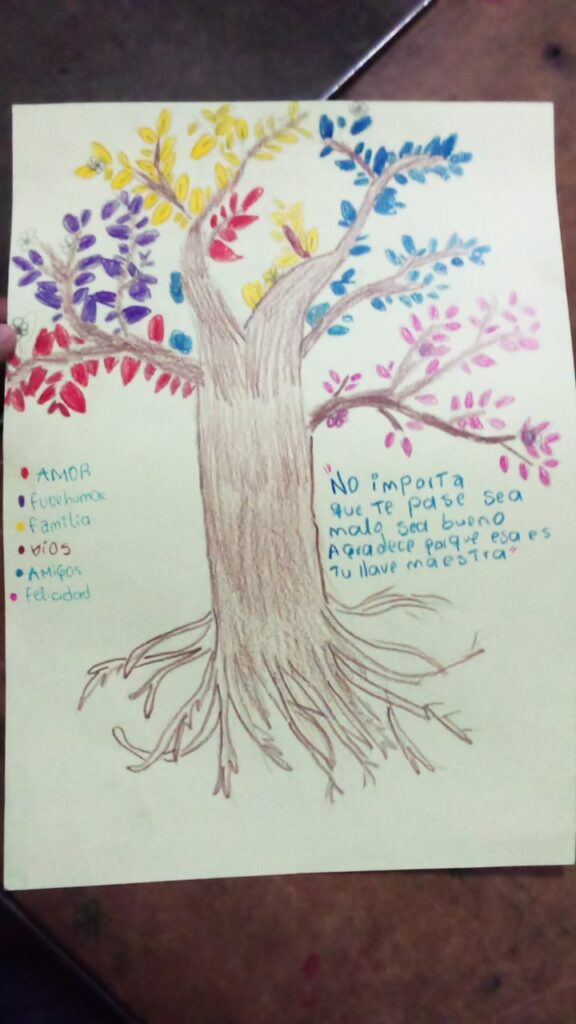 AMOR
familia
Dios
AMigos
felicidad
"No importa
que te pase sea
malo sea bueno
Agradece porque esa es
Tu llave maestra"